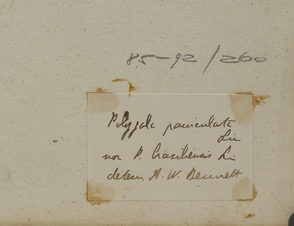 85-92/260
Polygala paniculata
Lin
non P. brasiliensis Li
determ A. W. Bennett